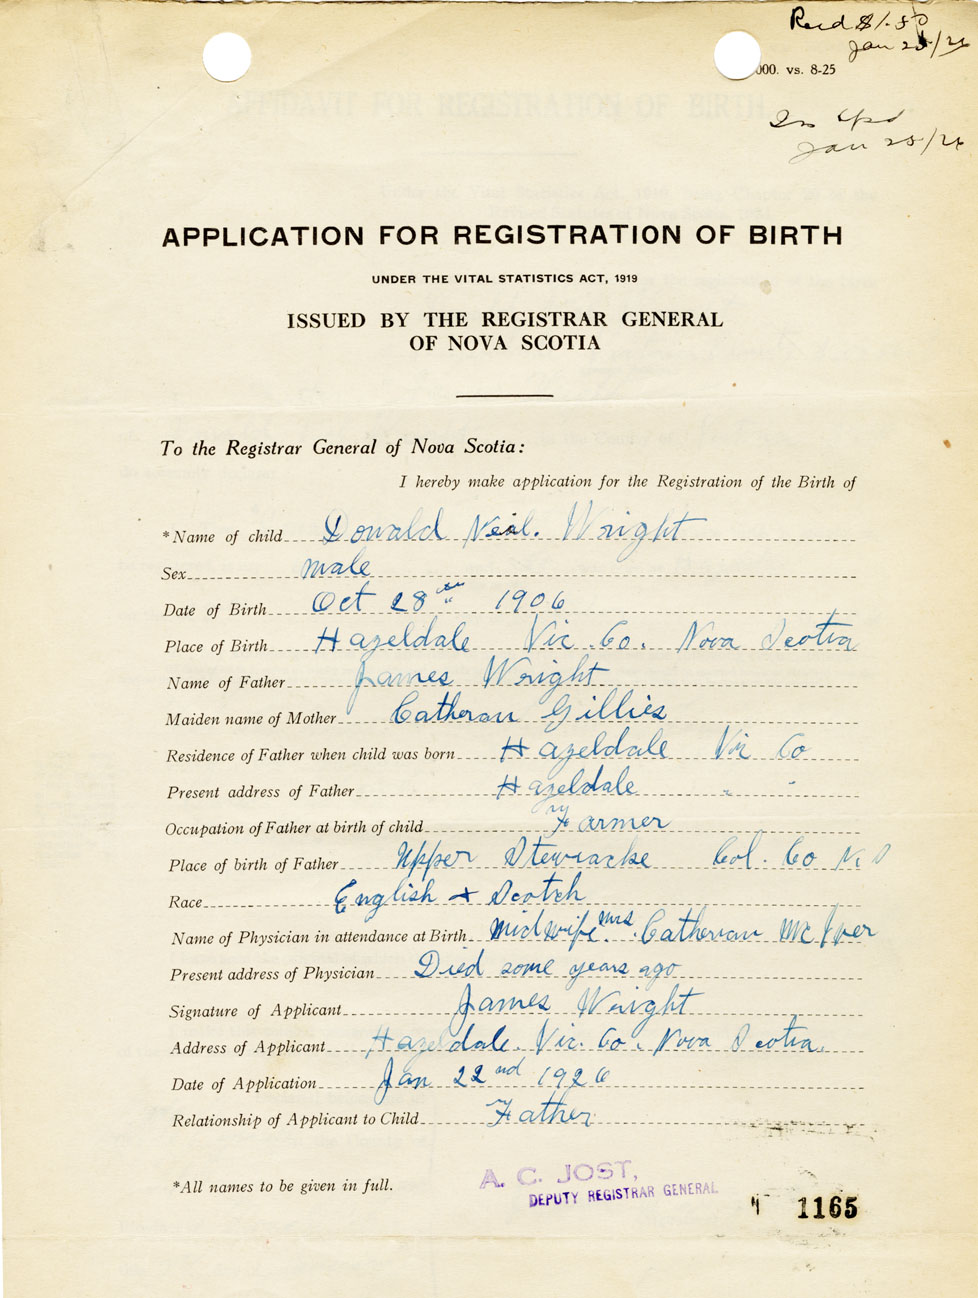 Recd $1.50
Jan 25/26
000. vs. 8-25
Jan 25/26
APPLICATION FOR REGISTRATION OF BIRTH
UNDER THE VITAL STATISTICS ACT, 1919
ISSUED BY THE REGISTRAR GENERAL
OF NOVA SCOTIA
To the Registrar General of Nova Scotia:
I hereby make application for the Registration of the Birth of
*Name of child Donald Neil. Wright
Sex male
Date of Birth Oct 28th 1906
Place of Birth Hazeldale Vic. Co. Nova Scotia
Name of Father James Wright
Maiden name of Mother Catheran Gillies
Residence of Father when child was born Hazeldale Vic Co
Present address of Father Hazeldale " "
Occupation of Father at birth of child Farmer
Place of birth of Father Upper Stewiacke Col. Co N. S
Race English + Scotch
Name of Physician in attendance at Birth Midwife. Mrs. Catheran McIver
Present address of Physician Died some years ago
Signature of Applicant James Wright
Address of Applicant Hazeldale. Vic. Co. Nova Scotia.
Date of Application Jan 22nd 1926
Relationship of Applicant to Child Father
*All names to be given in full.
A. C. JOST,
DEPUTY REGISTRAR GENERAL
1165